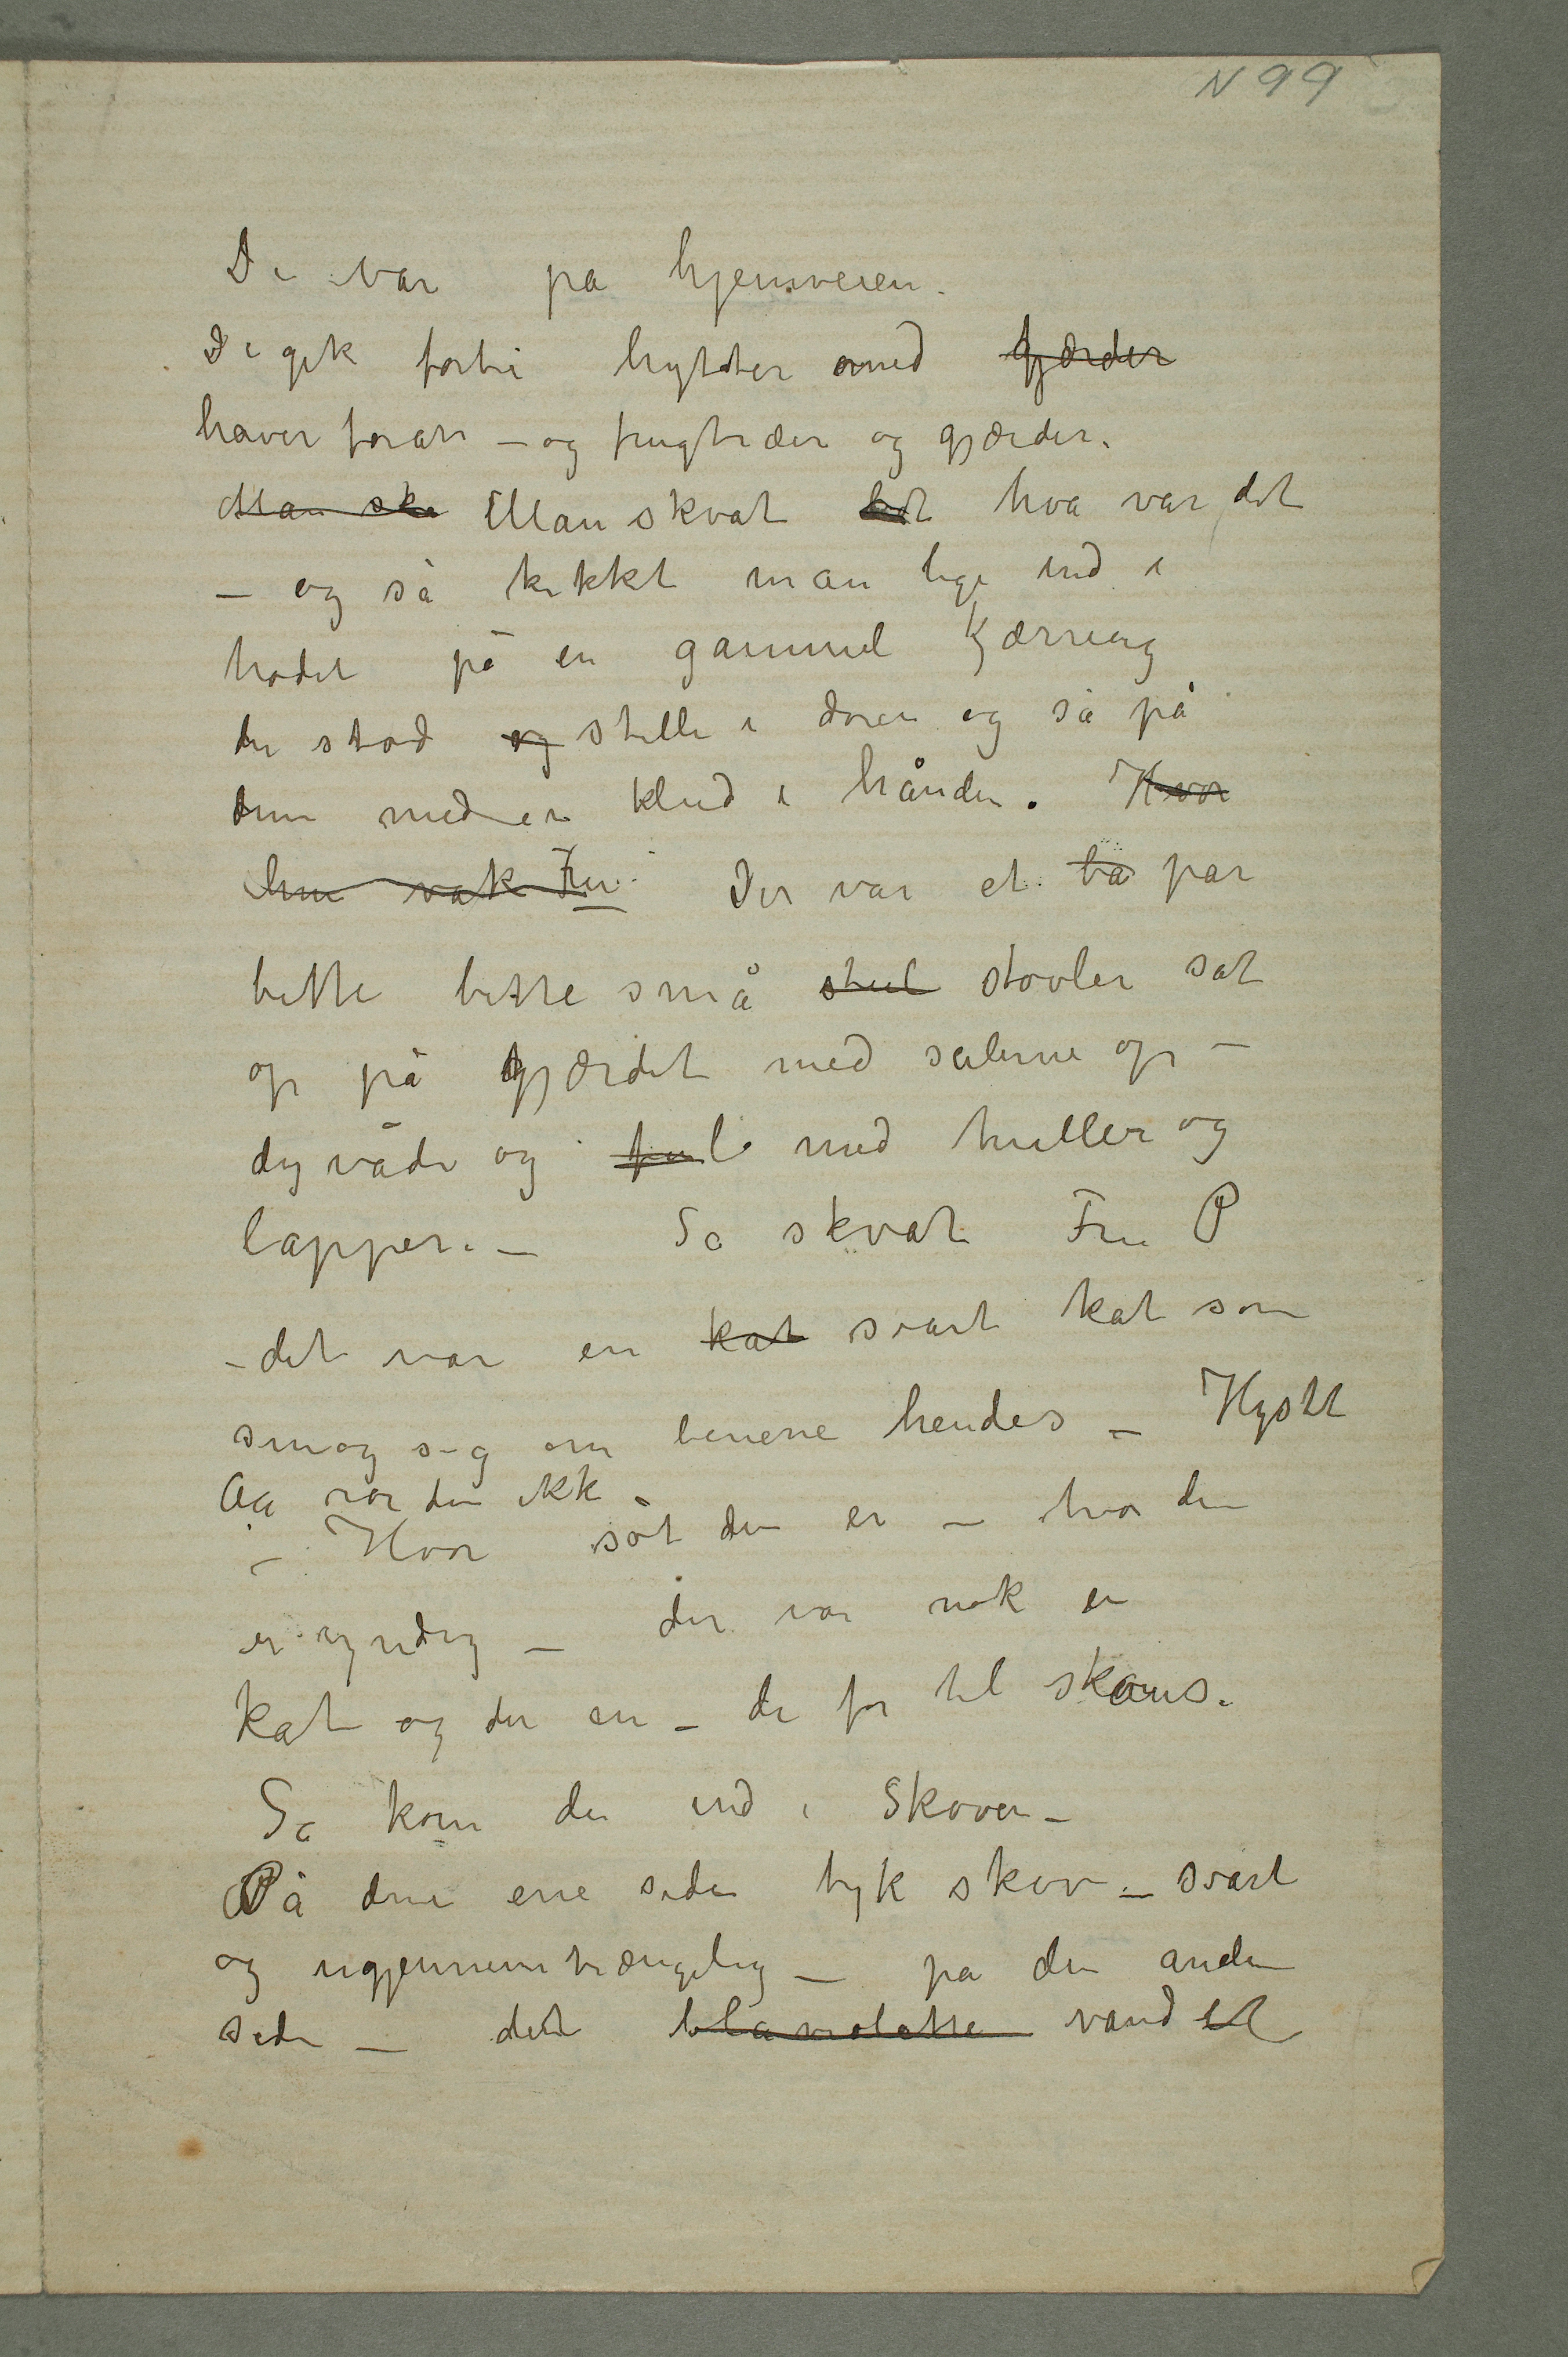 N 99
De var på hjemveien.
De gik forbi hytter med gjærder
haver foran – og frugtræer og gjærder.
Man ska Man skvat lidt hva var det
– og så kikket man lige ind i
hodet på en gammel Kjærring
der stod og stille i døren og så på
dem med en klud i hånden. Hvor
hun vak Fru Der var et ba par
bitte bitte små støvler sat
op på gjærdet med sålerne op –
dyvåde og ful med huller og
lapper. – Så skvat Fru P
– det var en kat svart kat som
smøg sig om benene hendes – Hystt
Aa rør den ikke
– Hvor søt den er – hvor den
er yndig – der var nok en
kat og der en – de for til skovs.
Så kom de ind i Skoven –
På den ene siden tyk skov – svart
og ugjennemtrængelig – på den anden
side – det blåviolette vandet